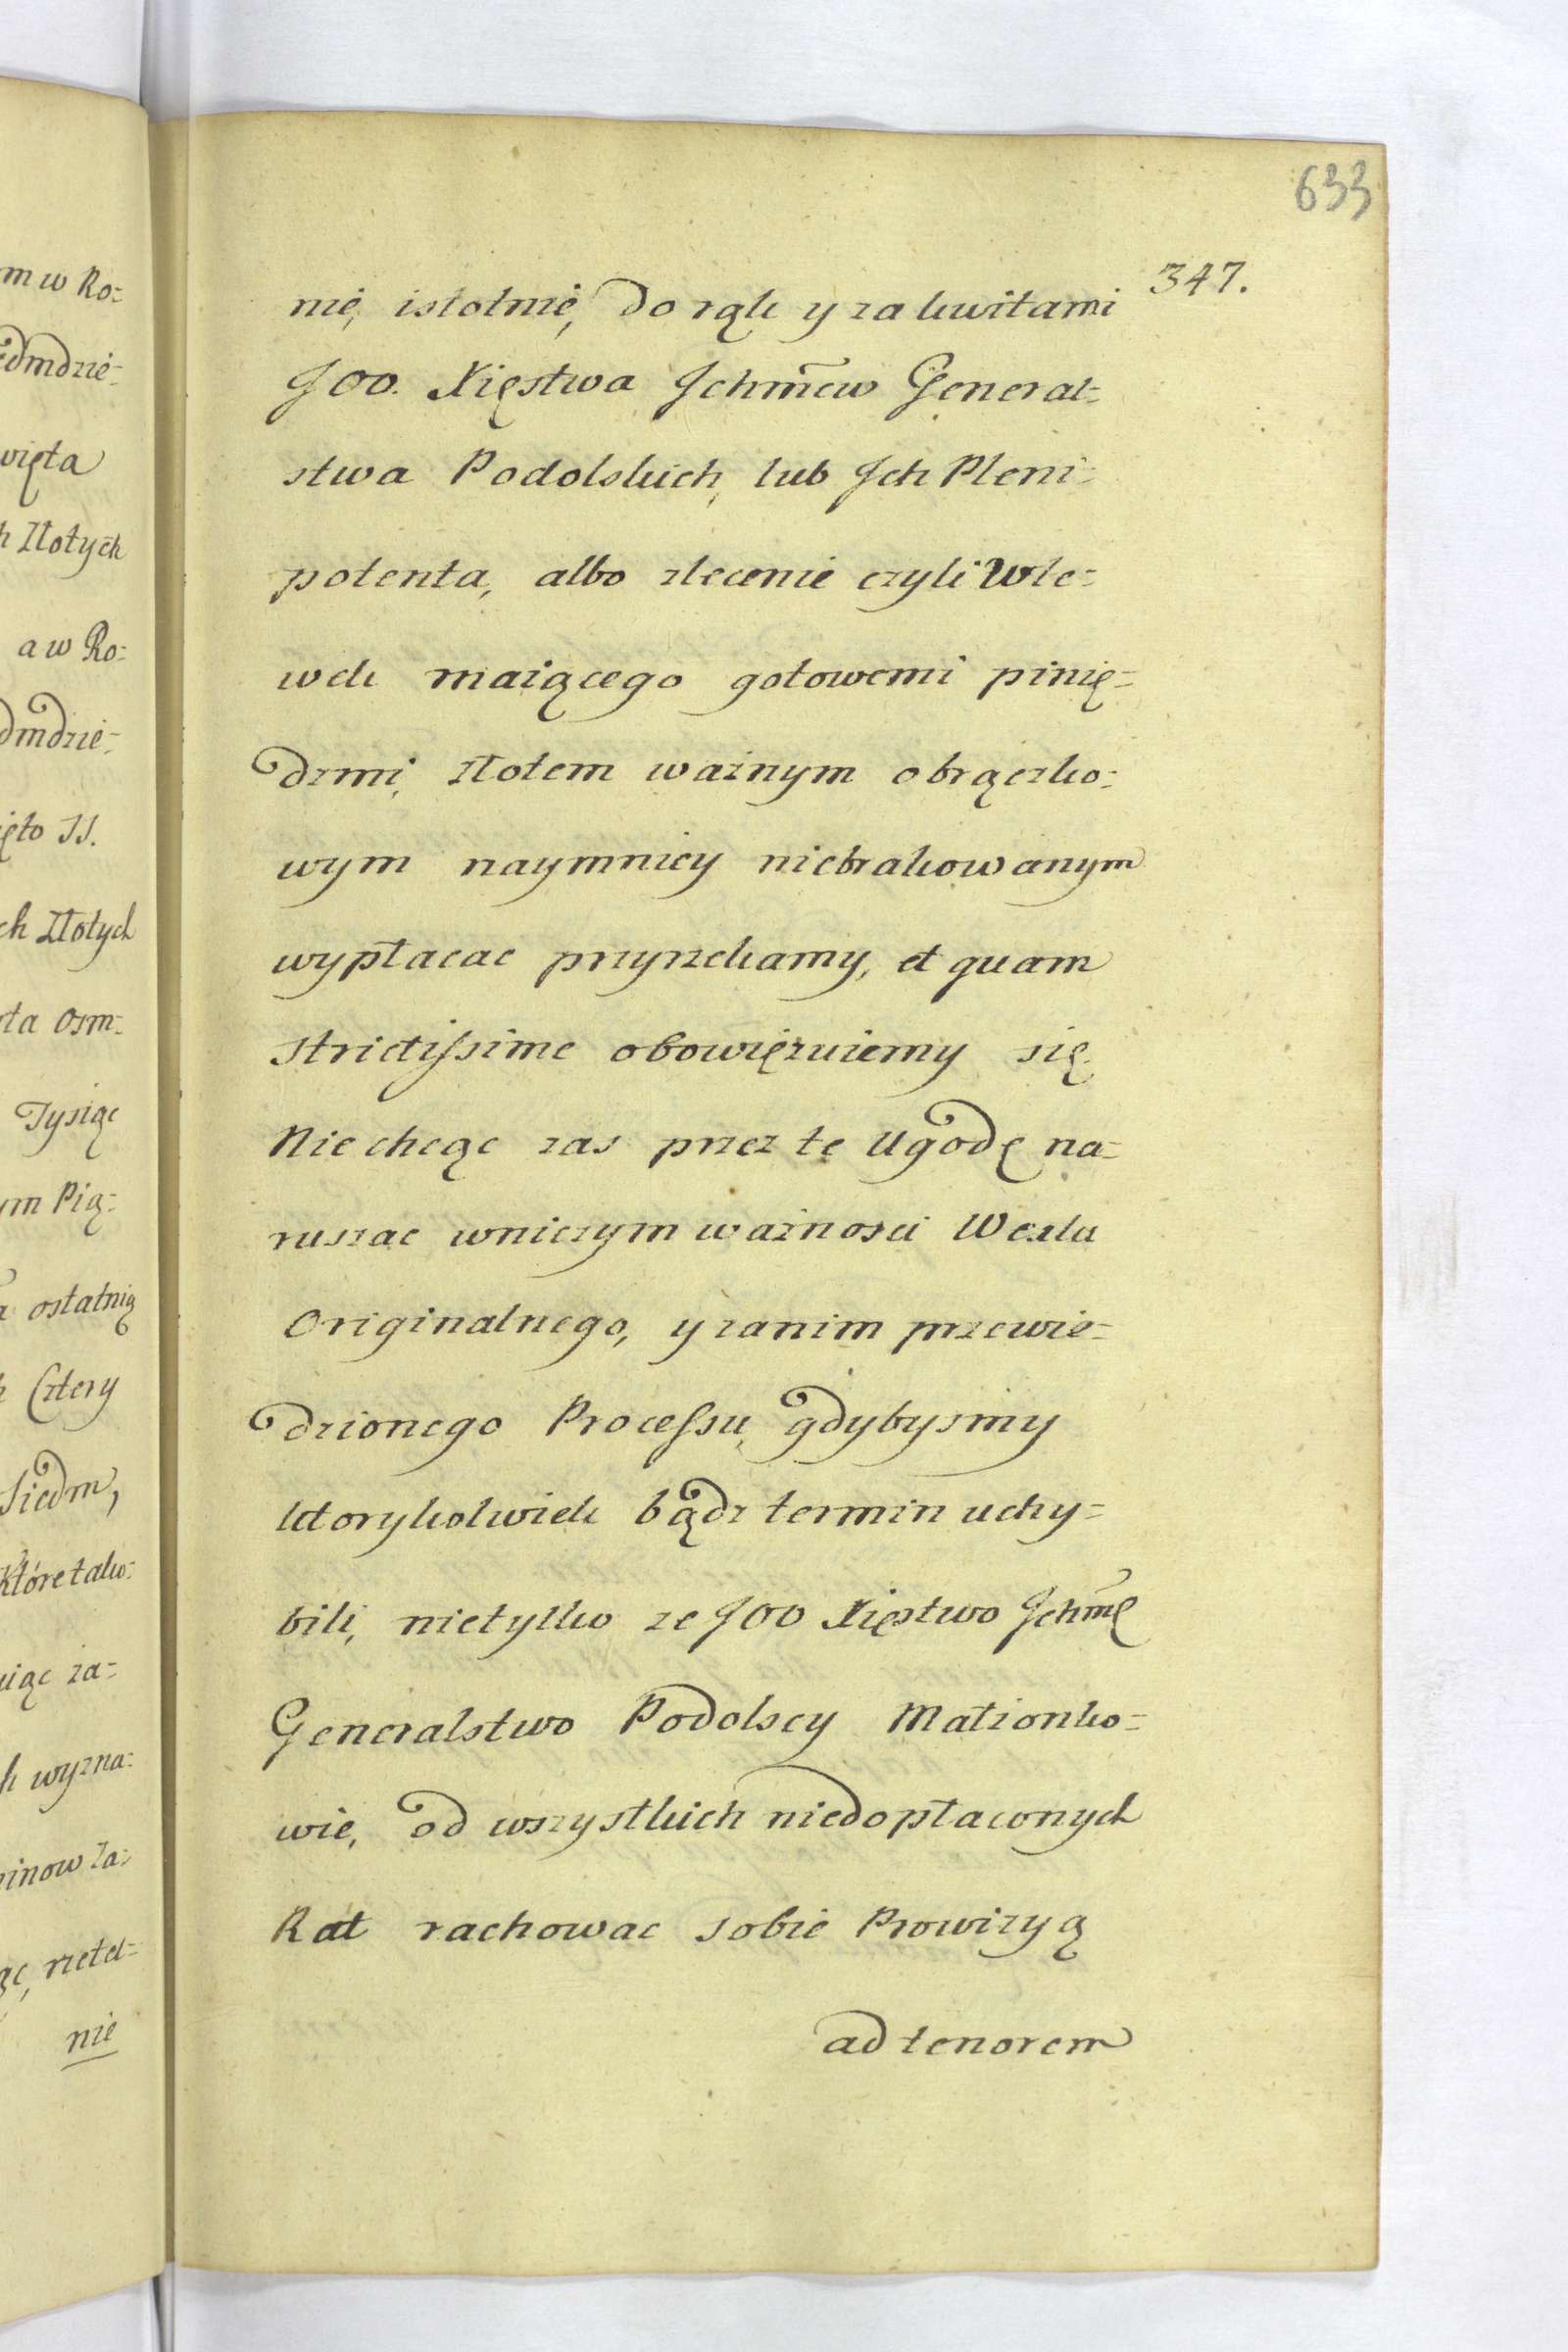 633
347.
nie, istotnie, do rąk y za kwitami
JOO. Xięstwa Ichm̃ćw Generał=
stwa Podolskich, lub Ich Pleni=
potenta, albo zlecenie czyli Wle=
wek maiącego gotowemi pinię=
dzmi, złotem ważnym obrączko=
wym naymniey niebrakowanym
wypłacac przyrzekamy, et quam
strictissime obowięzuiemy się.
Nie chcąc zas przez tę Ugodę na=
ruszac wniczym ważnosci Wexlu
Originalnego, y zanim przewie=
dzionego Processu, gdybysmy
ktorykolwiek bądz termin uchy=
bili, nietylko ze JOO Xięstwo Ichm̃ę
Generalstwo Podolscy Małżonko=
wie, od wszystkich niedopłaconych
Rat rachowac sobie Prowizyą
ad tenorem
m w Ro=
edmdzie=
więta
h Złotych
a w Ro=
dmdzie=
ięto SS.
ch Złotych
ta Osm=
Tysiąc
ym Pią=
a ostatnią
h Cztery
Siedm,
Które tako=
uiąc za=
h wyzna=
inow za=
ąc, rzetel=
nie